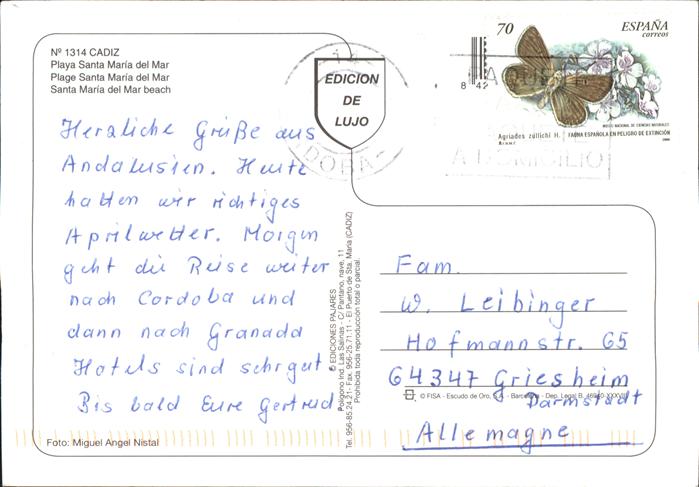 Nº 1314 CADIZ
Playa Santa María del Mar
Plage Santa María del Mar
Santa María del Mar beach
EDICION
DE
LUJO
70
ESPAÑA
correos
8 42
Agriades zullichi H.
FAUNA ESPAÑOLA EN PELIGRO DE EXTINCIÓN
A DOMICILIO
Herzliche Grüße aus
Andalusien. Heute
hatten wir richtiges
Aprilwetter. Morgen
geht die Reise weiter
nach Cordoba und
dann nach Granada
Hotels sind sehr gut
Bis bald Eure Gertrud
© EDICIONES PAJARES
Polígono Ind. Las Salinas - C/ Pantano, nave, 11
Tel. 956-85.24.21- Fax. 956-25.71.11 - El Puerto de Sta. María (CADIZ)
Prohibida toda reproducción total o parcial.
Fam.
W. Leibinger
Hofmannstr. 65
64347 Griesheim
Darmstadt
Allemagne
© FISA - Escudo de Oro, S.A. - Barcelona - Dep. Legal B.
Foto: Miguel Angel Nistal